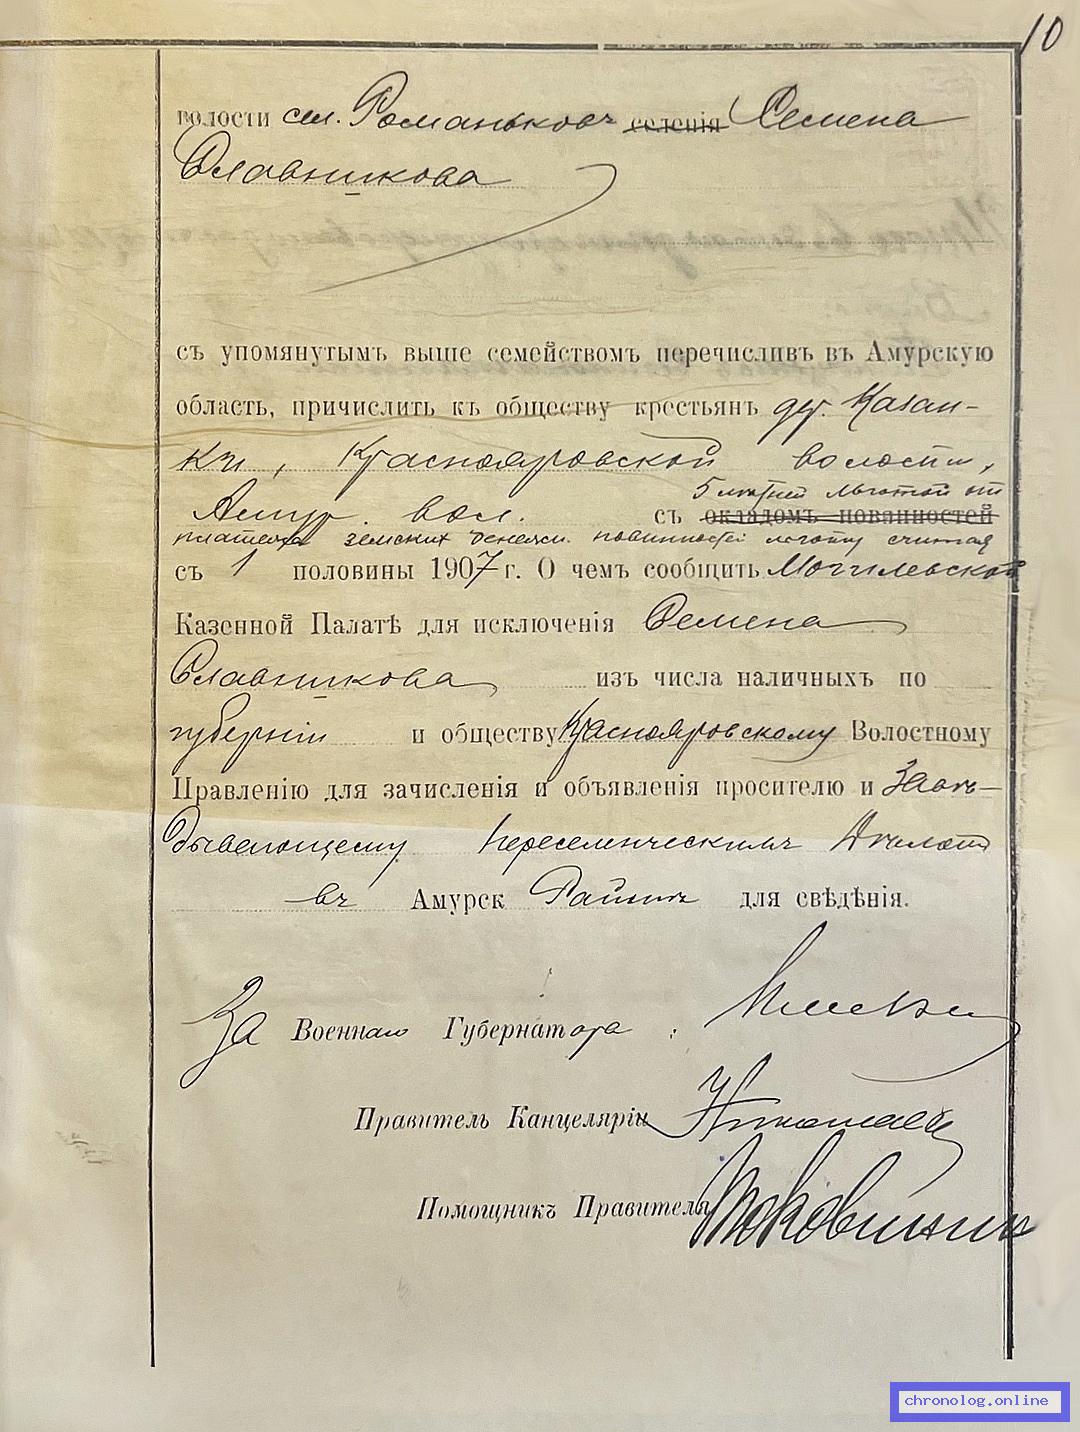 10
волости сел. Романьковъ селенія Семена
Славникова
съ упомянутымъ выше семействомъ перечисливъ въ Амурскую
область, причислить къ обществу крестьянъ дер. Казан-
ки, Краснояровской волости,
5 лѣтней льготой от
Амур. вол. съ окладомъ повинностей
платежа земских денежн. повинностей льготу считая
съ 1 половины 1907 г. О чемъ сообщить Могилевской
Казенной Палатѣ для исключенія Семена
Славникова изъ числа наличныхъ по
губерніи и обществу Краснояровскому Волостному
Правленію для зачисленія и объявленія просителю и Завѣ-
дывающему переселенческимъ дѣломъ
въ Амурск Районѣ для свѣдѣнія.
За Военнаго Губернатора:
Правитель Канцеляріи
Помощникъ Правителя
chronolog.online